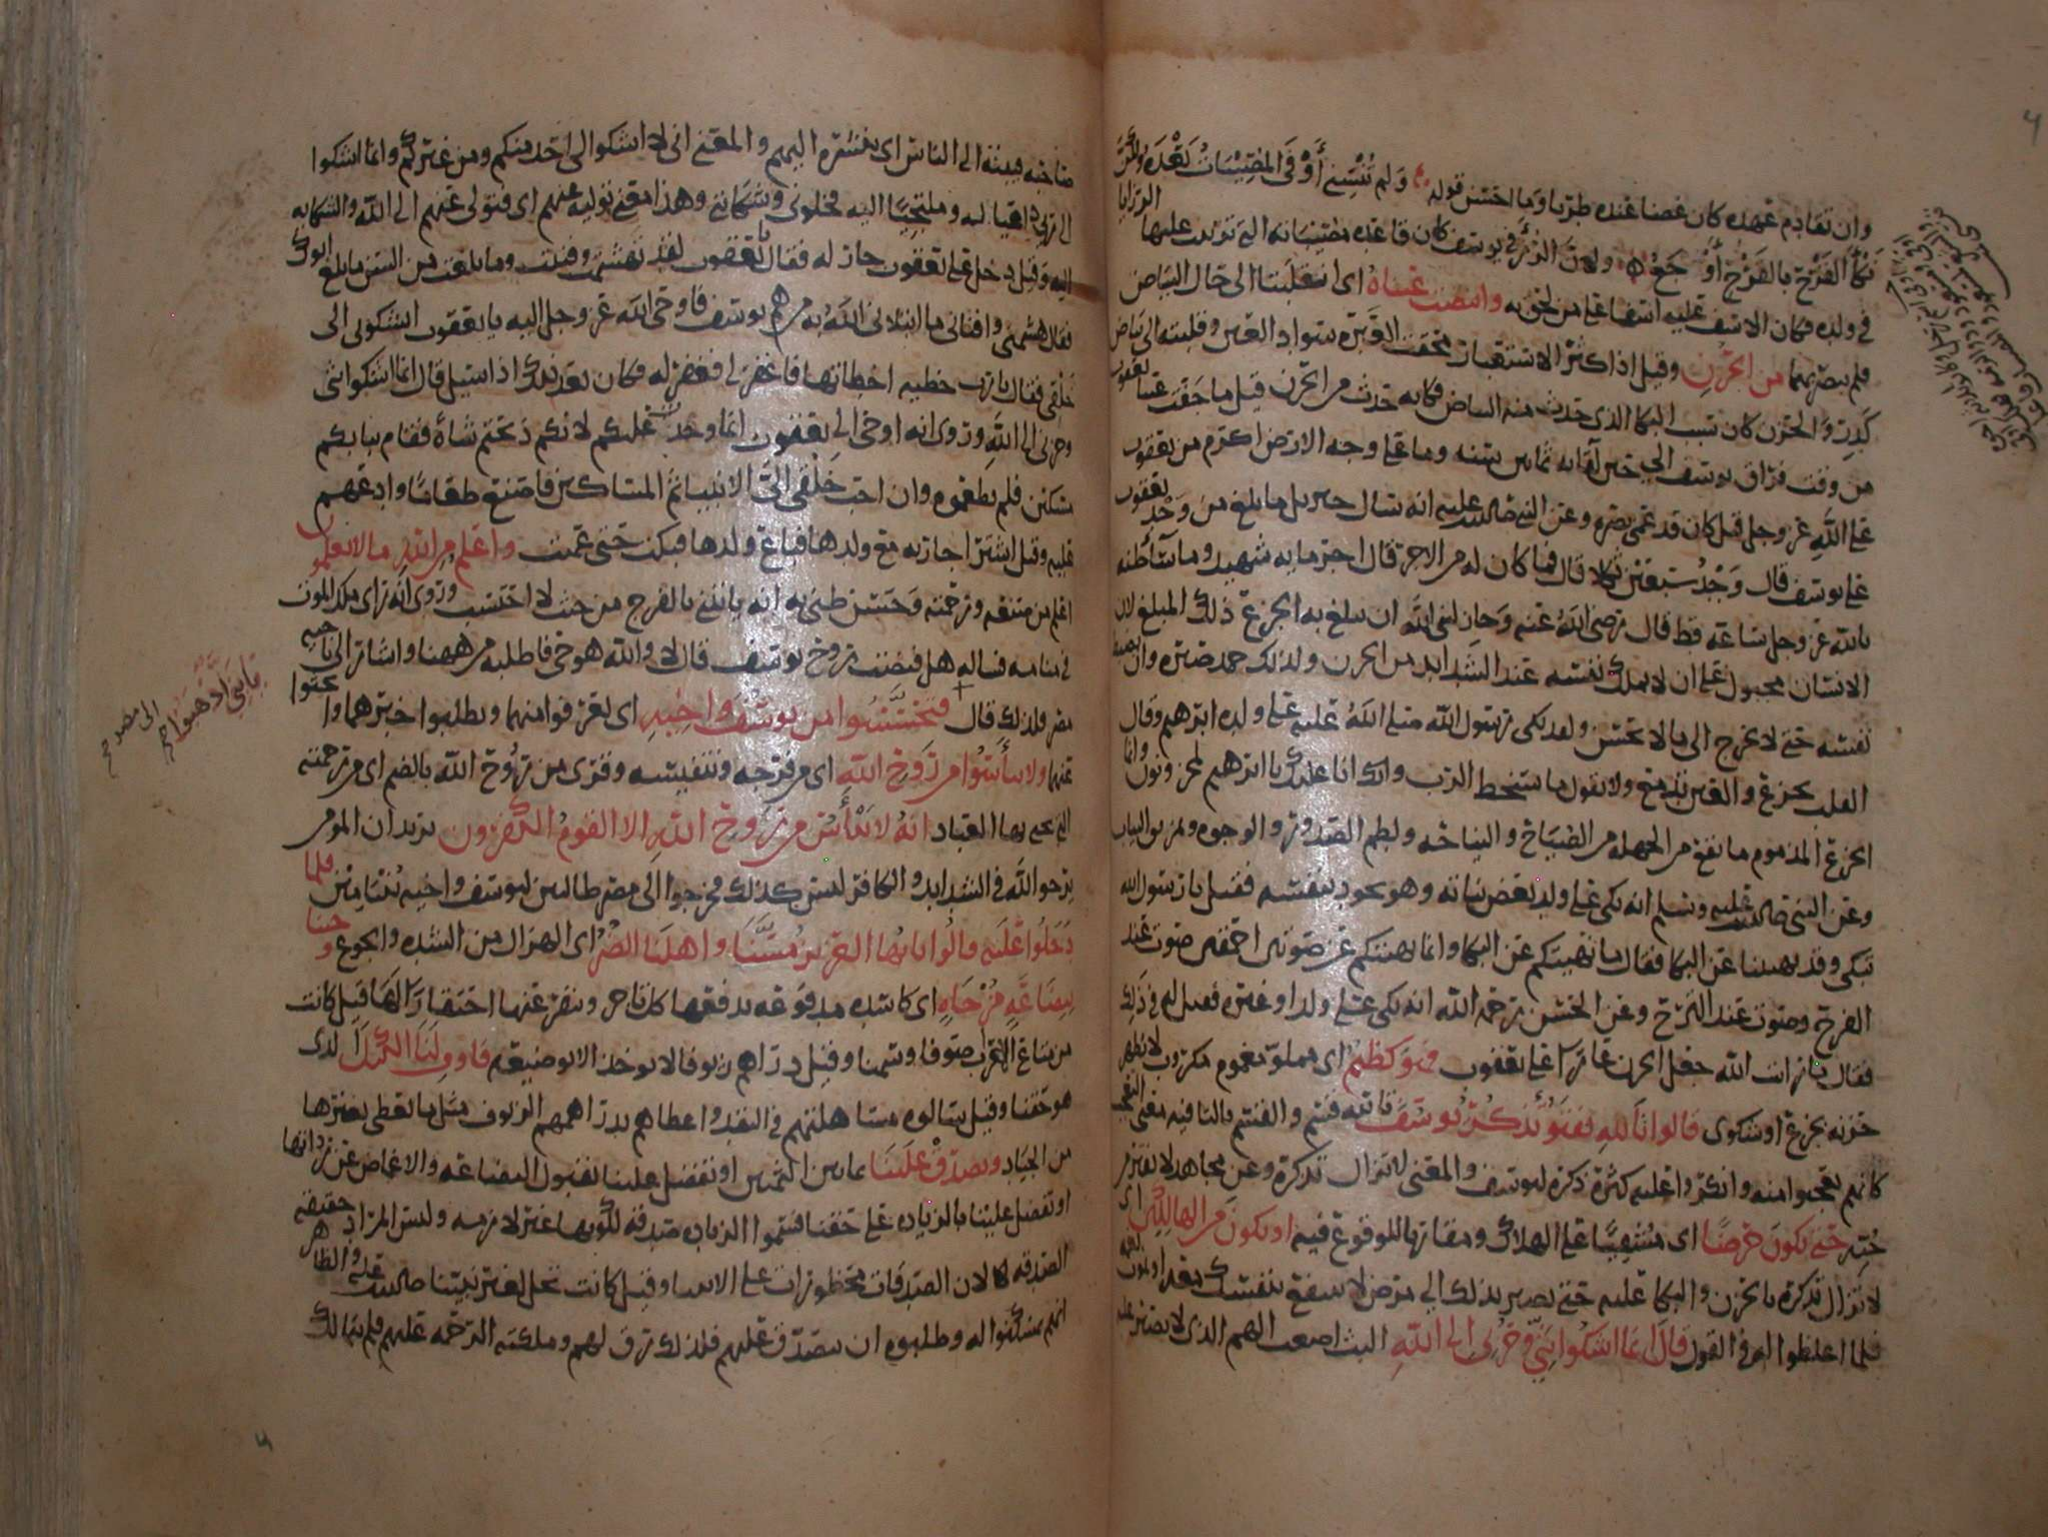 وان تقادم عهده كان غضا عنده طريا وما احسن قوله ولم تنسني أوفى المصيبات بعده
نكأ القرح بالقرح أوجع ولان الرزء في يوسف كان قاعدة مصيباته التي ترتبت عليها الرزايا
في ولده فكان الاسف عليه اسفا على من لحق به وابيضت عيناه اى انقلبتا الى حال البياض
فلم يبصر بهما من الحزن وقيل اذا كثر الاستعبار محقت العبرة سواد العين وقلبته الى بياض
كدر والحزن كان سبب البكا الذى حدث منه البياض فكانه حدث من الحزن قيل ما جفت عينا يعقوب
من وقت فراق يوسف الى حين لقائه ثمانين سنة وما على وجه الارض اكرم من يعقوب
على الله عز وجل قيل كان قد عمى بصره وعن النبي صلى الله عليه انه سال جبريل ما بلغ من وجد يعقوب
على يوسف قال وجد سبعين ثكلا قال فما كان له من الاجر قال اجر مايه شهيد وما سآ ظنه
بالله عز وجل ساعة قط قال رضى الله عنه وجاز لنبي الله ان يبلغ به الجزع ذلك المبلغ لان
الانسان مجبول على ان لا يملك نفسه عند الشدايد من الحزن ولذلك حمد صبره وان يضبط
نفسه حتى لا يخرج الى ما لا يحسن ولقد بكى رسول الله صلى الله عليه على ولده ابرهيم وقال
القلب يجزع والعين تدمع ولا نقول ما يسخط الرب وانا عليك يا ابرهيم لمحزونون وانما
الجزع المذموم ما يقع من الجهلة من الصياح والنياحة ولطم الصدور والوجوه وتمزيق الثياب
وعن النبي صلى الله عليه وسلم انه بكى على ولد بعض بناته وهو يجود بنفسه فقيل يا رسول الله
تبكى وقد نهيتنا عن البكا فقال ما نهيتكم عن البكا وانما نهيتكم عن صوتين احمقين صوت عند
الفرح وصوت عند الترح وعن الحسن رحمه الله انه بكى على ولد او غيره فقيل له في ذلك
فقال ما رايت الله جعل الحزن عارا على يعقوب فهو كظيم اى مملو مغموم مكروب لا يظهر
حزنه بجزع او شكوى قالوا تالله تفتؤ تذكر يوسف
كانهم تعجبوا منه وانكروا عليه كثرة ذكره ليوسف والمعنى لا تزال تذكره وعن مجاهد لا تفتر من
حبه حتى تكون حرضا اى مشفيا على الهلاك ومقاربا للوقوع فيه او تكون من الهالكين اى
لا تزال تذكره بالحزن والبكا عليه حتى تصير بذلك الى مرض لا تنتفع بنفسك معه او تموت
فلما اغلظوا له في القول قال انما اشكو بثي وحزني الى الله البث اصعب الهم الذى لا يصبر عليه
صاحبه فيبثه الى الناس اى ينشره اليهم والمعنى انى لا اشكو الى احد منكم ومن غيركم وانما اشكوا
الى ربى داعيا له وملتجيا اليه فخلونى وشكايتى وهذا معنى توليه عنهم اى فتولى عنهم الى الله والشكاية
اليه وقيل دخل على يعقوب جار له فقال يا يعقوب لقد تهشمت وفنيت وما بلغت من السن ما بلغ ابوك
فقال هشمنى وافنانى ما ابتلانى الله به من هم يوسف فاوحى الله عز وجل اليه يا يعقوب اتشكونى الى
خلقى فقال يا رب خطيه اخطاتها فاغفر لى فغفر له فكان بعد ذلك اذا سيل قال انما اشكوا بثى
وحزنى الى الله وروى انه اوحى الى يعقوب انما وجدت عليكم لانكم ذبحتم شاة فقام ببابكم
مسكين فلم تطعموه وان احب خلقى الى الانبيا ثم المساكين فاصنع طعاما وادع عليه
وقيل اشترا جاريه مع ولدها فباع ولدها فبكت حتى عميت واعلم من الله ما لا تعلمون
اعلم من صنعه ورحمته وحسن ظنى به انه ياتينى بالفرج من حيث لا احتسب وروى انه راى ملك الموت
في منامه فساله هل قبضت روح يوسف قال لا والله هو حي فاطلبه من ههنا واشار الى ناحيه
مصر فلذلك قال فتحسسوا من يوسف واخيه اى تعرفوا منهما وتطلبوا خبرهما
يا بني اذهبوا صح
الى مصر صح
ولا تيأسوا من روح الله اى من فرجه وتنفيسه وقرى من روح الله بالضم اى من رحمته
التى يحيى بها العباد انه لا ييأس من روح الله الا القوم الكفرون يريد ان المومن
يرجوا الله في الشدايد والكافر ليس كذلك فخرجوا الى مصر طالبين ليوسف واخيه فلما
دخلوا عليه قالوا يا ايها العزيز مسنا واهلنا الضر اى الهزال من الشده والجوع وجئنا
ببضاعة مزجاه اى كاسده مدفوعه يدفعها كل تاجر وينفر عنها احتقارا لها قيل كانت
من متاع الاعراب صوفا وسمنا وقيل دراهم زيوفا لا توخذ الا بوضيعه فاوف لنا الكيل الذى
هو حقنا
من الجياد وتصدق علينا او تفضل علينا بقبول البضاعه والاغماض عن ردائها
او تفضل علينا بالزياده على حقنا فسموا الزياده صدقه
الصدقه لان الصدقات محظورات على الانبيا وقيل كانت تحل لغير نبينا صلى الله عليه والظاهر
انهم تمسكنوا له وطلبوه ان يتصدق عليهم فلذلك رق لهم وملكته الرحمه عليهم فلم يتمالك